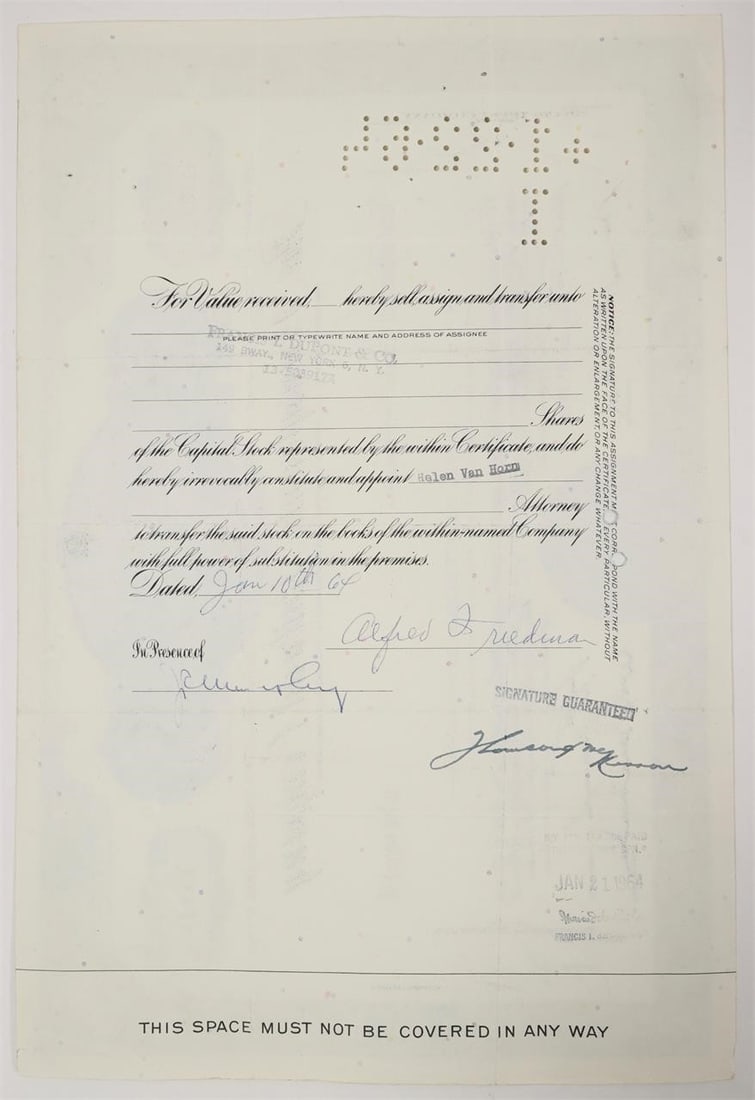 For Value received, hereby sell, assign and transfer unto
PLEASE PRINT OR TYPEWRITE NAME AND ADDRESS OF ASSIGNEE
DUPONT & CO.
149 BWAY., NEW YORK 5, N. Y.
Shares
of the Capital Stock represented by the within Certificate, and do
hereby irrevocably constitute and appoint Helen Van Horn
Attorney
to transfer the said stock on the books of the within-named Company
with full power of substitution in the premises.
Dated, Jan 10th 64
Alfred F Friedman
In Presence of
SIGNATURE GUARANTEED
Thomson & McKinnon
JAN 21 1964
FRANCIS I.
NOTICE: THE SIGNATURE TO THIS ASSIGNMENT M CORR POND WITH THE NAME
AS WRITTEN UPON THE FACE OF THE CERTIFICATE, EVERY PARTICULAR, WITHOUT
ALTERATION OR ENLARGEMENT, OR ANY CHANGE WHATEVER.
THIS SPACE MUST NOT BE COVERED IN ANY WAY